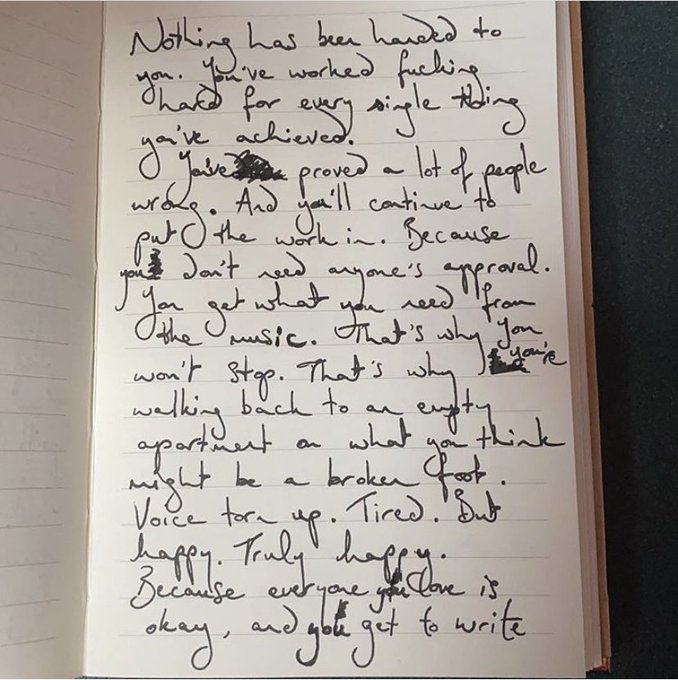 Nothing has been handed to
you. You've worked fucking
hard for every single thing
you've achieved.
You've proved a lot of people
wrong. And you'll continue to
put the work in. Because
you don't need anyone's approval.
You get what you need from
the music. That's why you
won't stop. That's why you're
walking back to an empty
apartment on what you think
might be a broken foot.
Voice torn up. Tired. But
happy. Truly happy.
Because everyone you love is
okay, and you get to write